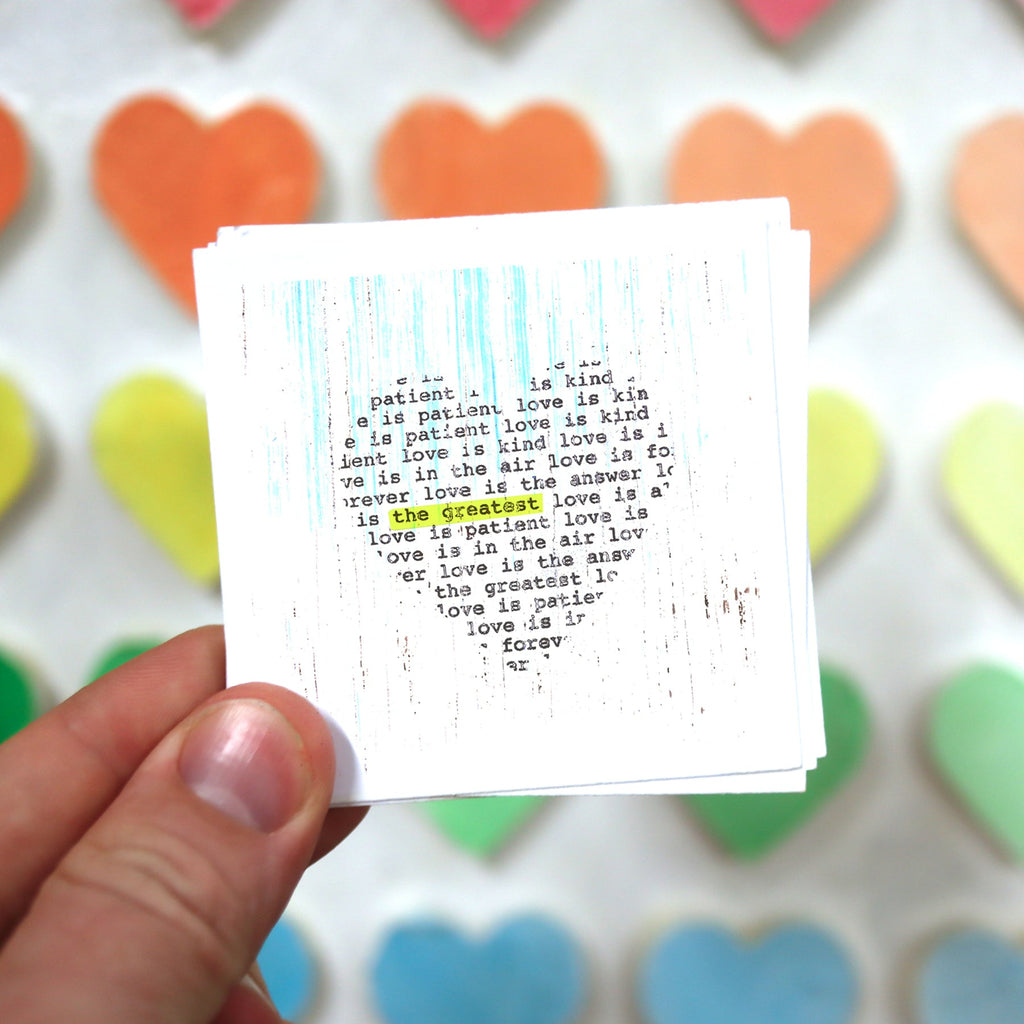 is
patient is kind
is patient love is kin
e is patient love is kind
ient love is kind love is i
ve is in the air love is fo
rever love is the answer lo
is the greatest love is a
love is patient love is
love is in the air lov
er love is the answ
the greatest lo
love is patien
love is in
forev
er